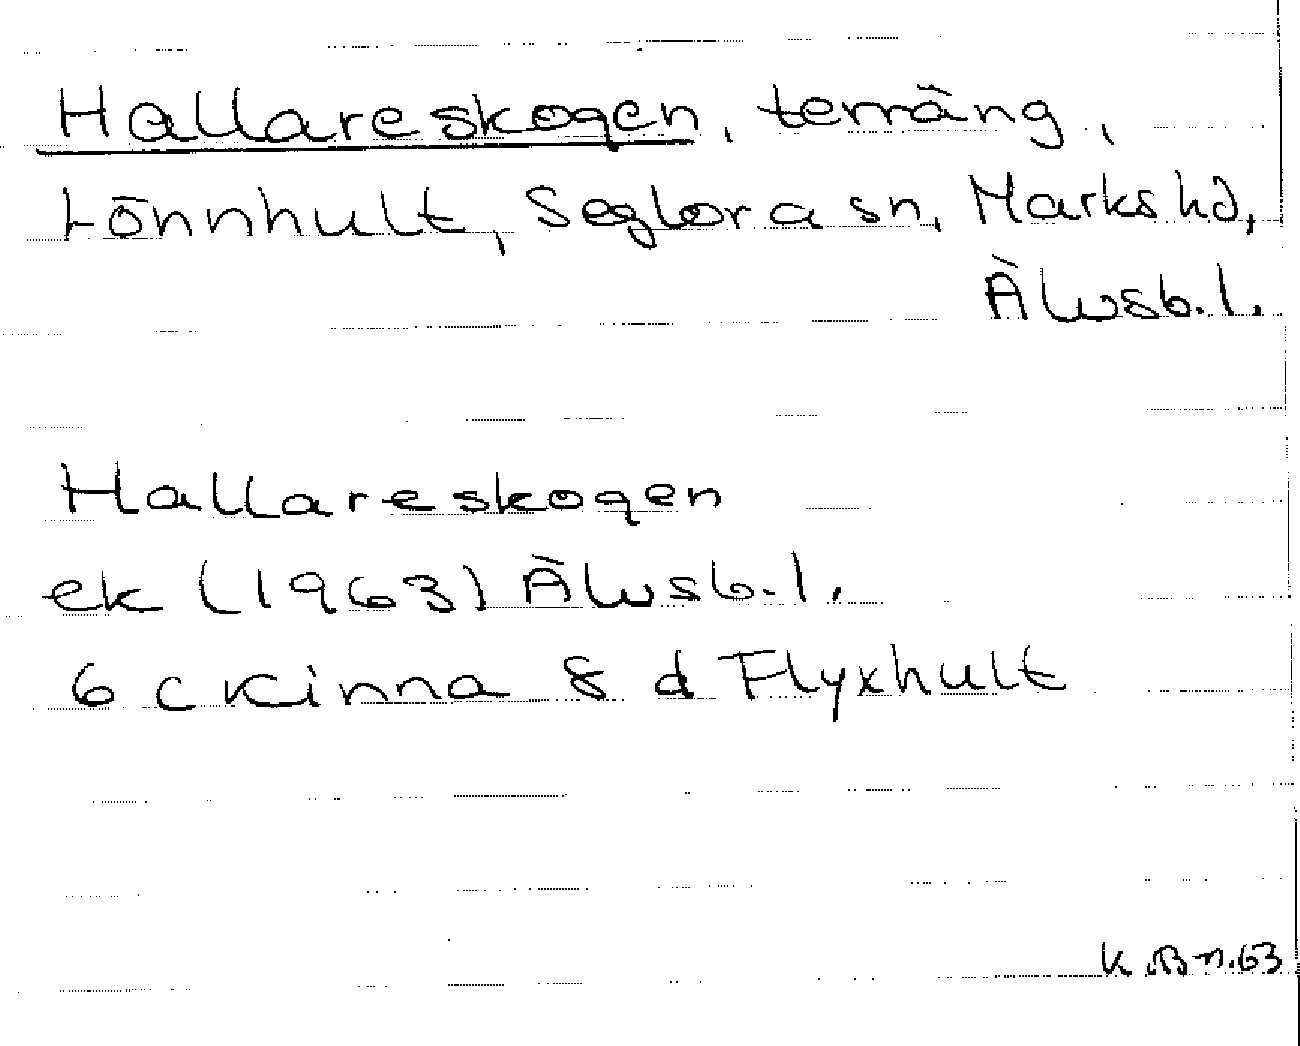 Hallareskogen, terräng,
Lönnhult, Seglora sn, Marks hd,
Älvsb. l.
Hallareskogen
ek (1963) Älvsb. l.
6 c Kinna 8 d Flyxhult
K. Bn. 63